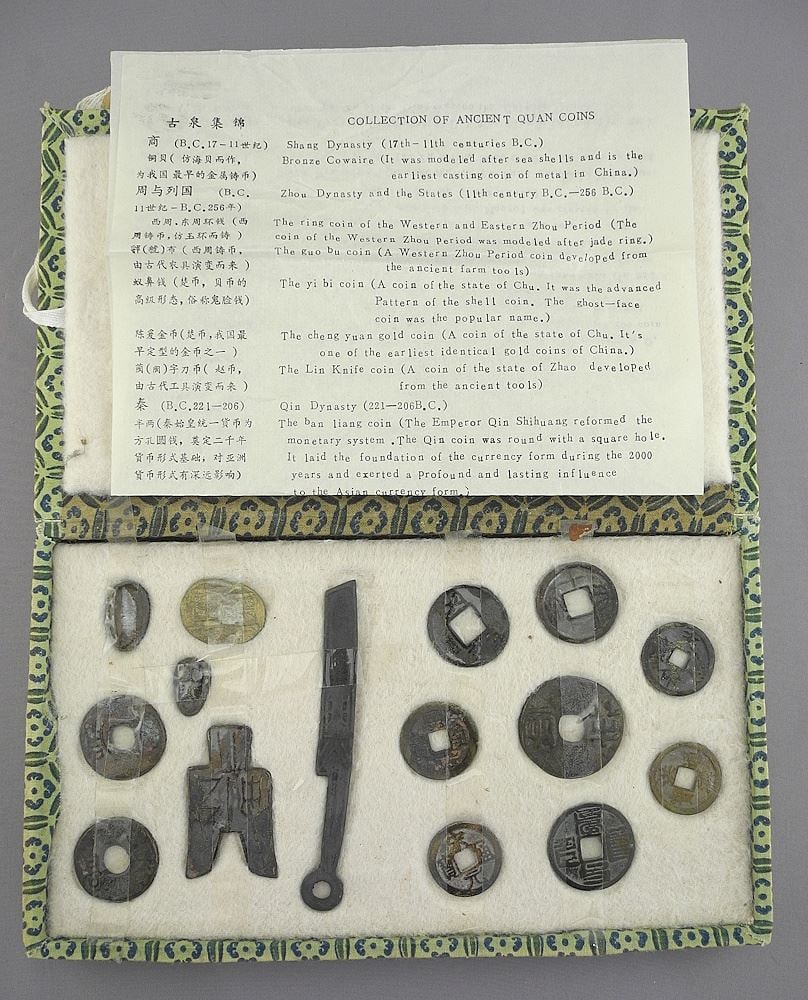 古泉集锦 COLLECTION OF ANCIENT QUAN COINS
商 (B.C.17-11世纪) Shang Dynasty (17th-11th centuries B.C.)
铜贝( 仿海贝而作, Bronze Cowaire (It was modeled after sea shells and is the
为我国最早的金属铸币) earliest casting coin of metal in China.)
周与列国 (B.C. Zhou Dynasty and the States (11th century B.C.—256 B.C.)
11世纪-B.C.256年)
西周、东周环钱(西 The ring coin of the Western and Eastern Zhou Period (The
周铸币,仿玉环而铸) coin of the Western Zhou Period was modeled after jade ring.)
布(西周铸币, The guo bu coin (A Western Zhou Period coin developed from
由古代农具演变而来) the ancient farm tools)
蚁鼻钱(楚币,贝币的 The yi bi coin (A coin of the state of Chu. It was the advanced
高级形态,俗称鬼脸钱) Pattern of the shell coin. The ghost—face
coin was the popular name.)
陈爰金币(楚币,我国最 The cheng yuan gold coin (A coin of the state of Chu. It's
早定型的金币之一) one of the earliest identical gold coins of China.)
字刀币( 赵币, The Lin Knife coin (A coin of the state of Zhao developed
由古代工具演变而来) from the ancient tools)
秦 (B.C.221—206) Qin Dynasty (221—206B.C.)
半两(秦始皇统一货币为 The ban liang coin (The Emperor Qin Shihuang reformed the
方孔圆钱,奠定二千年 monetary system .The Qin coin was round with a square hole.
货币形式基础,对亚洲 It laid the foundation of the currency form during the 2000
货币形式有深远影响) years and exerted a profound and lasting influence
to the Asian currency form.)